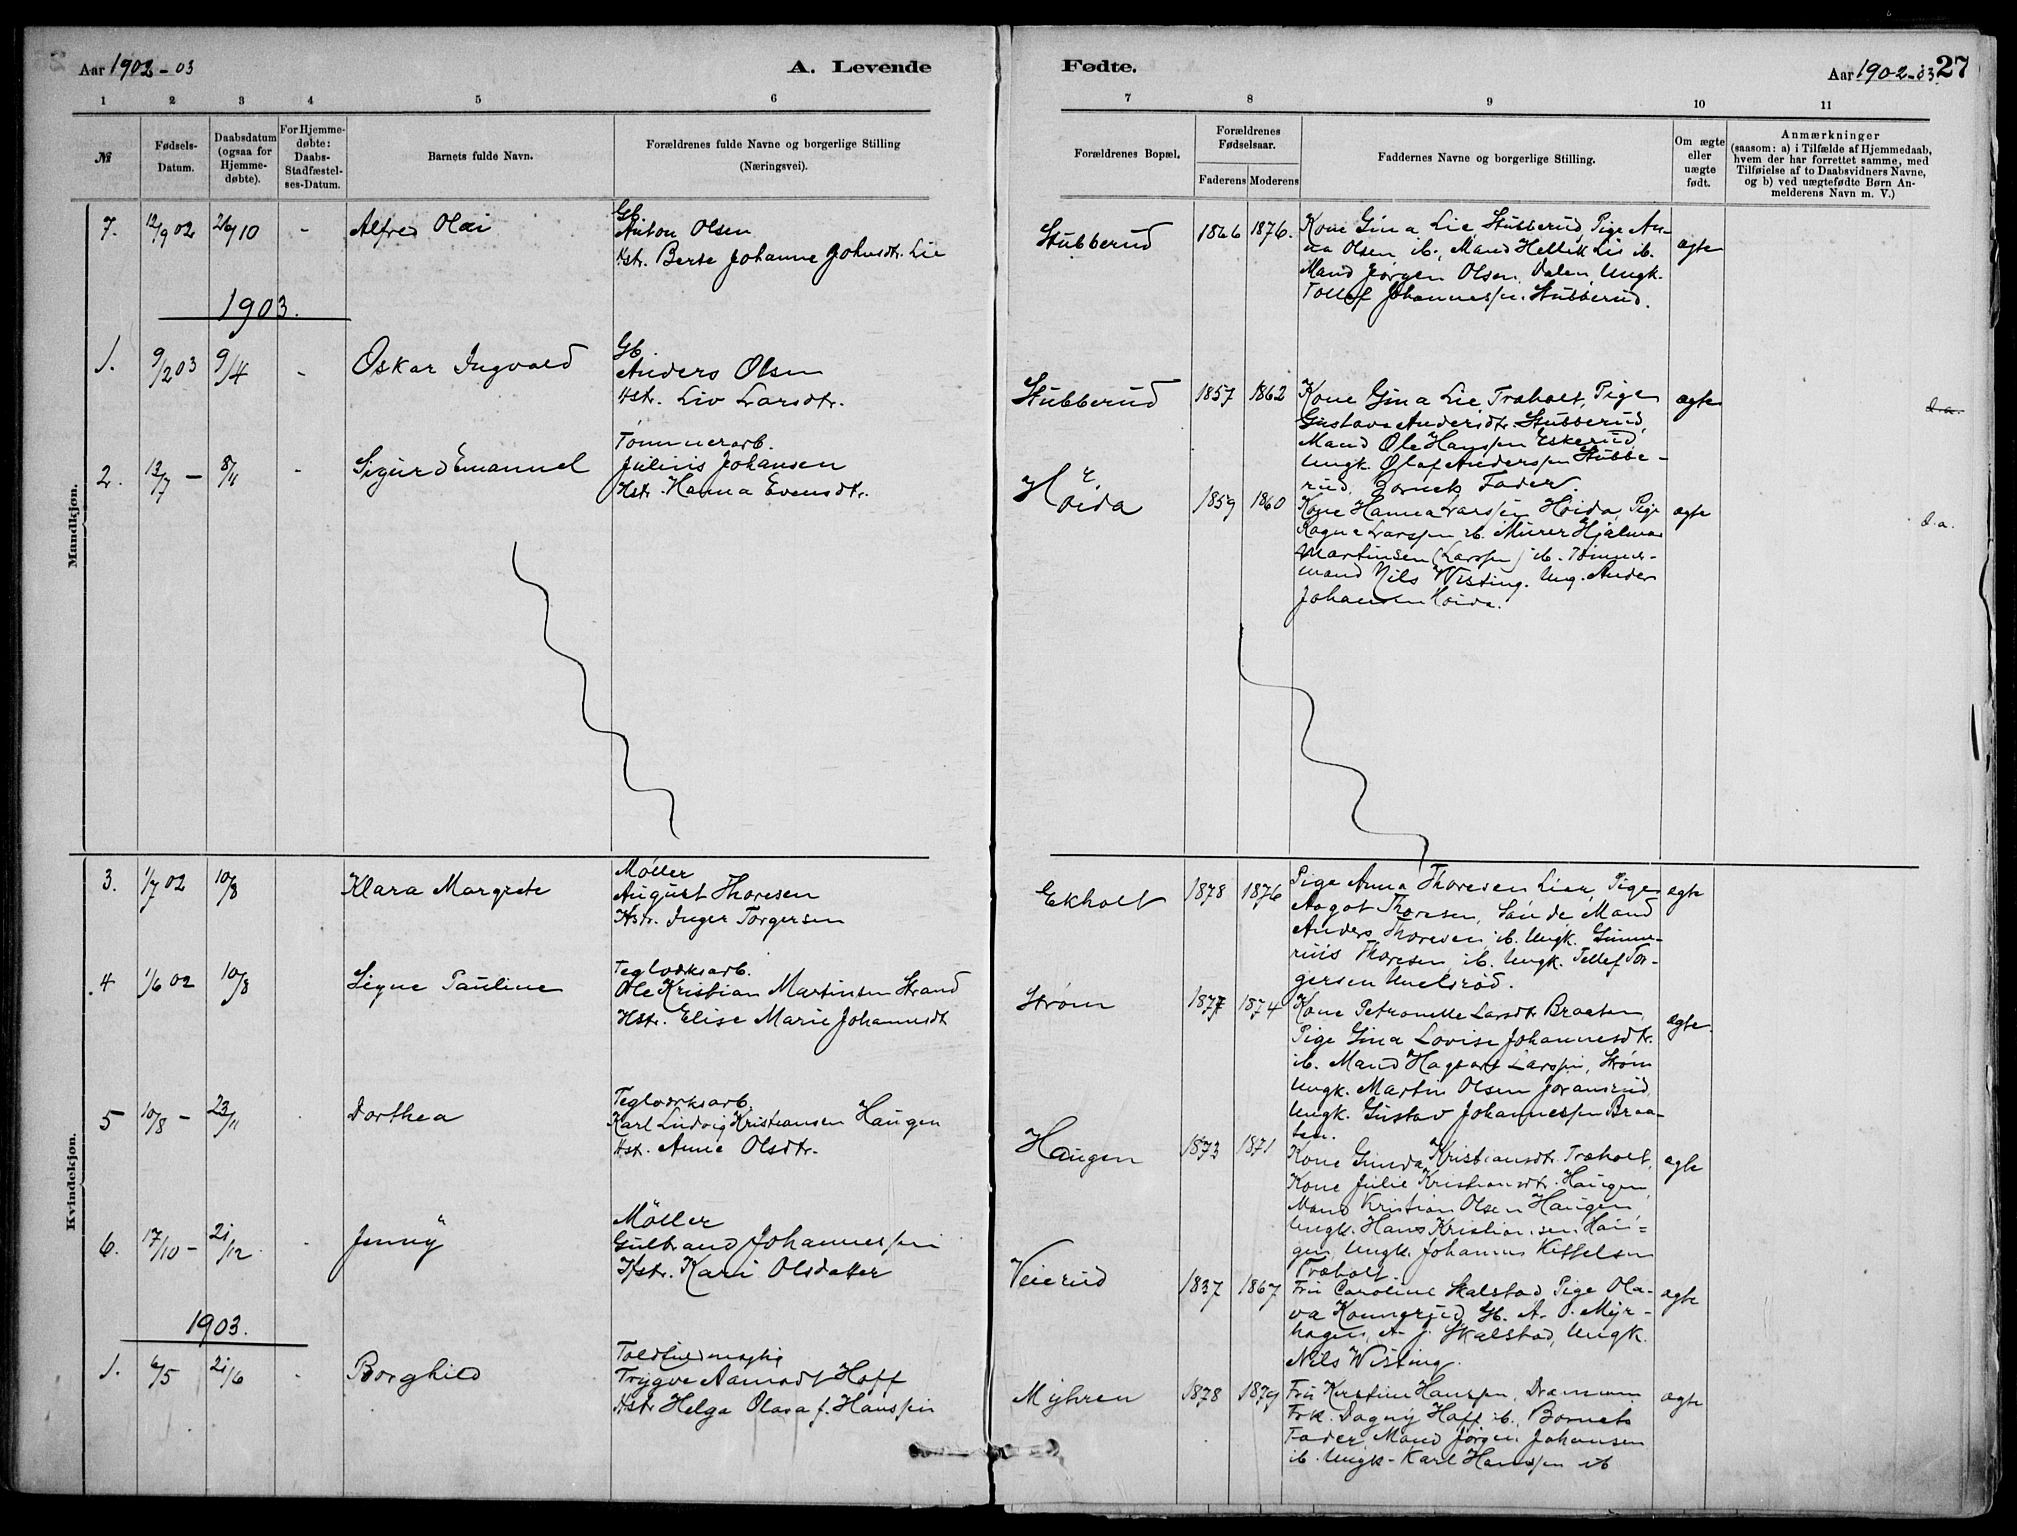 Aar 1902-03
A. Levende
Fødte.
Aar 1902-03.
27
1 2 3 4 5 6 7 8 9 10 11
№
Fødsels-
Datum.
Daabsdatum
(ogsaa for
Hjemme-
døbte).
For Hjemme-
døbte:
Daabs-
Stadfæstel-
ses-Datum.
Barnets fulde Navn.
Forældrenes fulde Navne og borgerlige Stilling
(Næringsvei).
Forældrenes Bopæl.
Forældrenes
Fødselsaar.
Faderens Moderens
Faddernes Navne og borgerlige Stilling.
Om ægte
eller
uægte
født.
Anmærkninger
(saasom: a) i Tilfælde af Hjemmedaab,
hvem der har forrettet samme, med
Tilføielse af to Daabsvidners Navne,
og b) ved uægtefødte Børn An-
melderens Navn m. V.)
Mandkjøn.
7. 12/9 02 26/10 - Alfred Olai
Gb.
Anton Olsen
Hstr. Berte Johanne Johnsdtr. Lie
Stubberud 1866 1876.
Kone Gina Lie, Stubberud, Pige An-
na Olsen ib., Mand Hellik Lie ib.
Mand Jørgen Olsen, Dalen, Ungk.
Tollef Johannessen Stubberud.
ægte
1903.
1. 9/2 03 9/4 - Oskar Ingvald
Gb.
Anders Olsen
Hstr. Liv Larsdtr.
Stubberud 1857 1862
Kone Gina Lie Træholt, Pige
Gustava Andersdtr. Stubberud,
Mand Ole Hanssen Eskerud,
Ungk. Olaf Anderssen Stubbe-
rud, Barnets Fader.
ægte
d.a.
2. 13/7 - 8/11 - Sigurd Emanuel
Tømmerarb.
Julius Johansen
Hstr. Hanna Evensdtr.
Høida 1859 1860
Kone Hanna Larssen Høida, Pige
Ragna Larssen ib. Murer Hjalmar
Martinsen (Larssen) ib. Tømmer-
mand Nils Wisting. Ung. Anders
Johansen Høida.
ægte
d.a.
Kvindekjøn.
3. 1/7 02 10/8 Klara Margrete
Møller
August Thoresen
Hstr. Inger Torgersen
Ekholt 1878 1876
Pige Anna Thoresen Lier, Pige
Aagot Thoresen, Sande, Mand
Anders Thoresen, ib. Ungk. Gunne-
rius Thoresen, ib. Ungk. Tellef Tor-
gersen
ægte
4 1/6 02 10/8 Signe Pauline
Teglværksarb.
Ole Kristian Martinsen Strand
Hstr. Elise Marie Johannesdt
Strøm 1877 1874
Kone Petronelle Larsdtr Braaten
Pige Gina Lovise Johannesdtr.
ib. Mand Hagbart Larssen, Strøm
Ungk. Martin Olsen Joransrud,
Ungk. Gustav Johannessen Braa-
ten.
ægte.
5 10/8 - 23/11 - Dorthea
Teglværksarb.
Karl Ludvig Kristiansen Haugen
Hstr. Anne Olsdtr.
Haugen 1873 1871
Kone Gunda Kristiansdtr. Træholt,
Kone Julie Kristiansdtr. Haugen,
Mand Kristian Olsen Haugen
Ungk. Hans Kristiansen Hau-
gen, Ungk. Johannes Kittelsen
Træholt.
ægte
6. 17/10 - 21/12 - Jenny
Møller
Gulbrand Johannessen
Hstr. Kari Olsdatter
Veierud 1837 1867
Fru Caroline Skalstad, Pige Ola-
va Kongsrud, Gb. A. O. Myr-
hagen, A. J. Skalstad, Ungk.
Nils Wisting.
ægte
1903.
1. 6/5 21/6 Borghild
Toldfuldmægtig
Trygve Aamodt Hoff
Hstr Helga Olava f. Hanssen
Myhren 1878 1879
Fru Kirstine Hanssen, Drammen
Frk. Dagny Hoff ib., Barnets
Fader, Mand Jørgen Johansen
ib. Ungk. Karl Hanssen ib
ægte